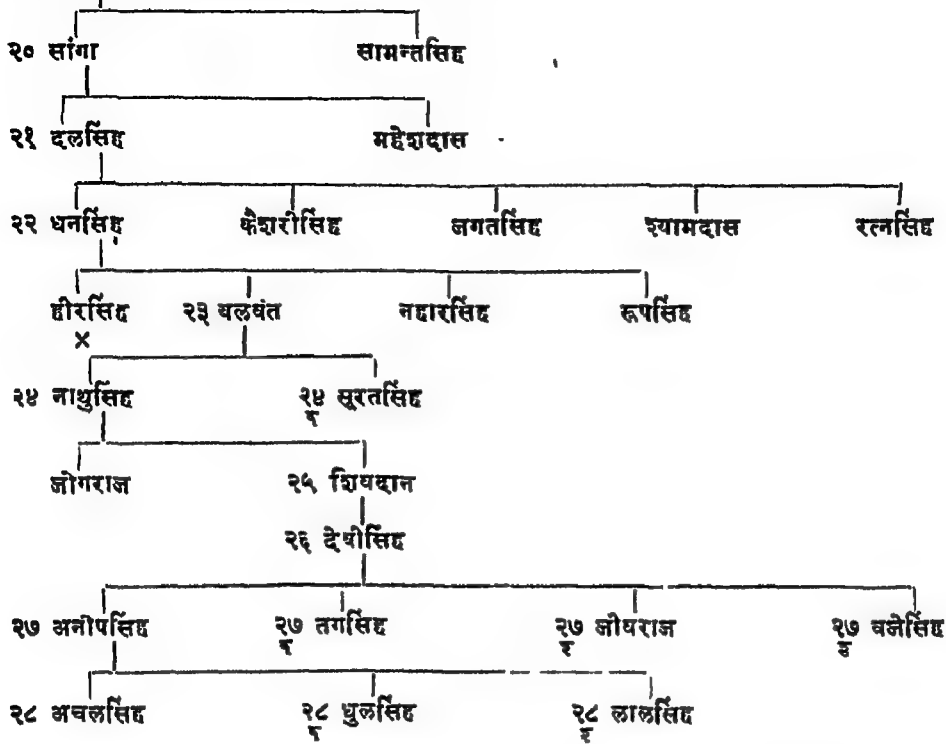 २० सांगा सामन्तसिंह
२१ दलसिंह महेशदास
२२ धनसिंह कैशरीसिंह जगतसिंह श्यामदास रत्नसिंह
हीरसिंह २३ बलवंत नहारसिंह रूपसिंह
×
२४ नाथुसिंह २४/१ सूरतसिंह
जोगराज २५ शिवदान
२६ देवीसिंह
२७ अनोपसिंह २७/१ तगसिंह २७/२ जोधराज २७/३ वजेसिंह
२८ अचलसिंह २८/१ धुलसिंह २८/२ लालसिंह